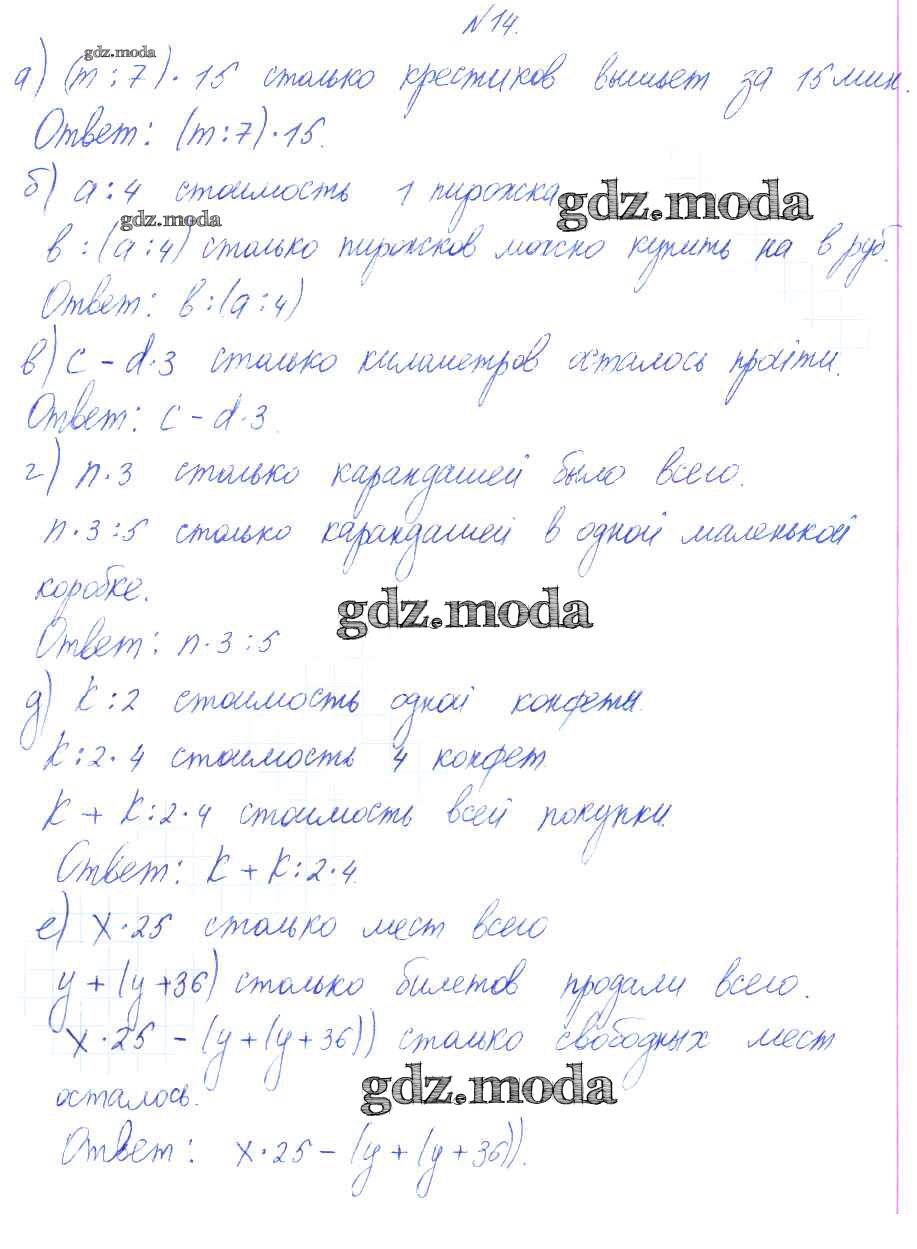 №14.
gdz.moda
а) (m : 7) · 15 столько крестиков вышьет за 15 мин.
Ответ: (m : 7) · 15.
б) а : 4 стоимость 1 пирожка
gdz.moda
gdz.moda
в : (а : 4) столько пирожков можно купить на в руб.
Ответ: в : (а : 4)
в) с - d · 3 столько километров осталось пройти.
Ответ: с - d · 3.
г) n · 3 столько карандашей было всего.
n · 3 : 5 столько карандашей в одной маленькой
коробке.
gdz.moda
Ответ: n · 3 : 5
д) К : 2 стоимость одной конфеты.
К : 2 · 4 стоимость 4 конфет.
К + К : 2 · 4 стоимость всей покупки.
Ответ: К + К : 2 · 4.
е) х · 25 столько мест всего
у + (у + 36) столько билетов продали всего.
х · 25 - (у + (у + 36)) столько свободных мест
осталось.
gdz.moda
Ответ: х · 25 - (у + (у + 36)).